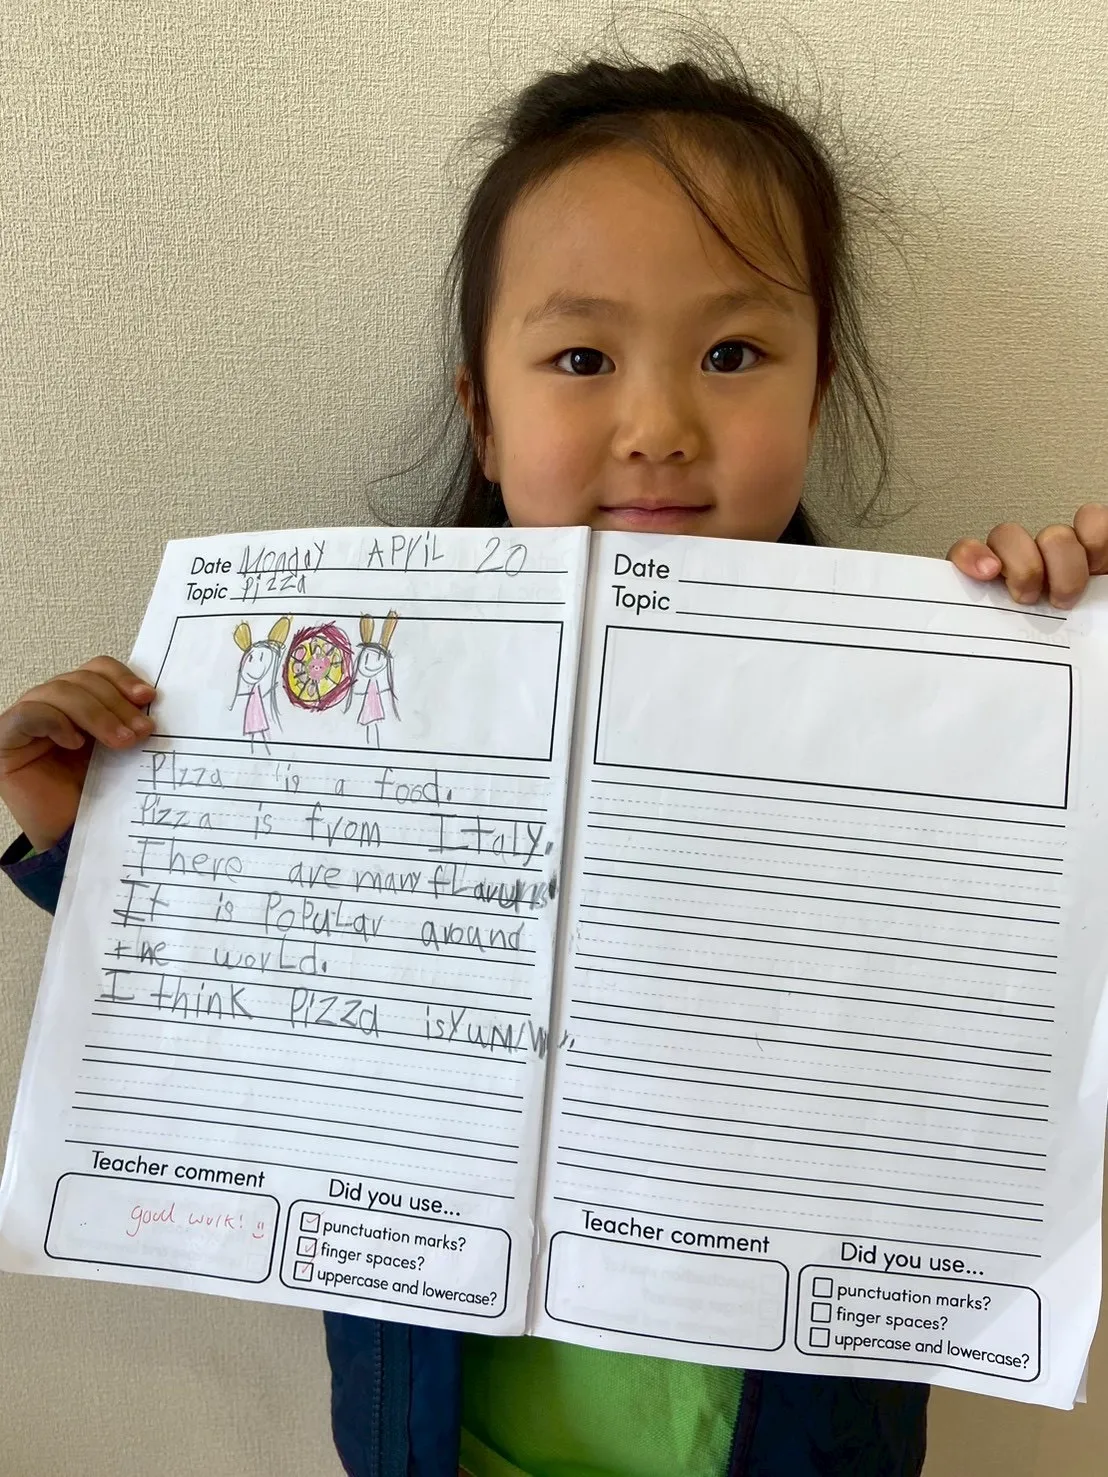 Date Monday APriL 20
Topic Pizza
PIzza is a food.
Pizza is from Italy.
There are many fLavurs
It is PoPuLar around
the worLd.
I think PIZZa is YuMMy.
Teacher comment
good work! :)
Did you use...
punctuation marks?
finger spaces?
uppercase and lowercase?
Date
Topic
Teacher comment
Did you use...
punctuation marks?
finger spaces?
uppercase and lowercase?